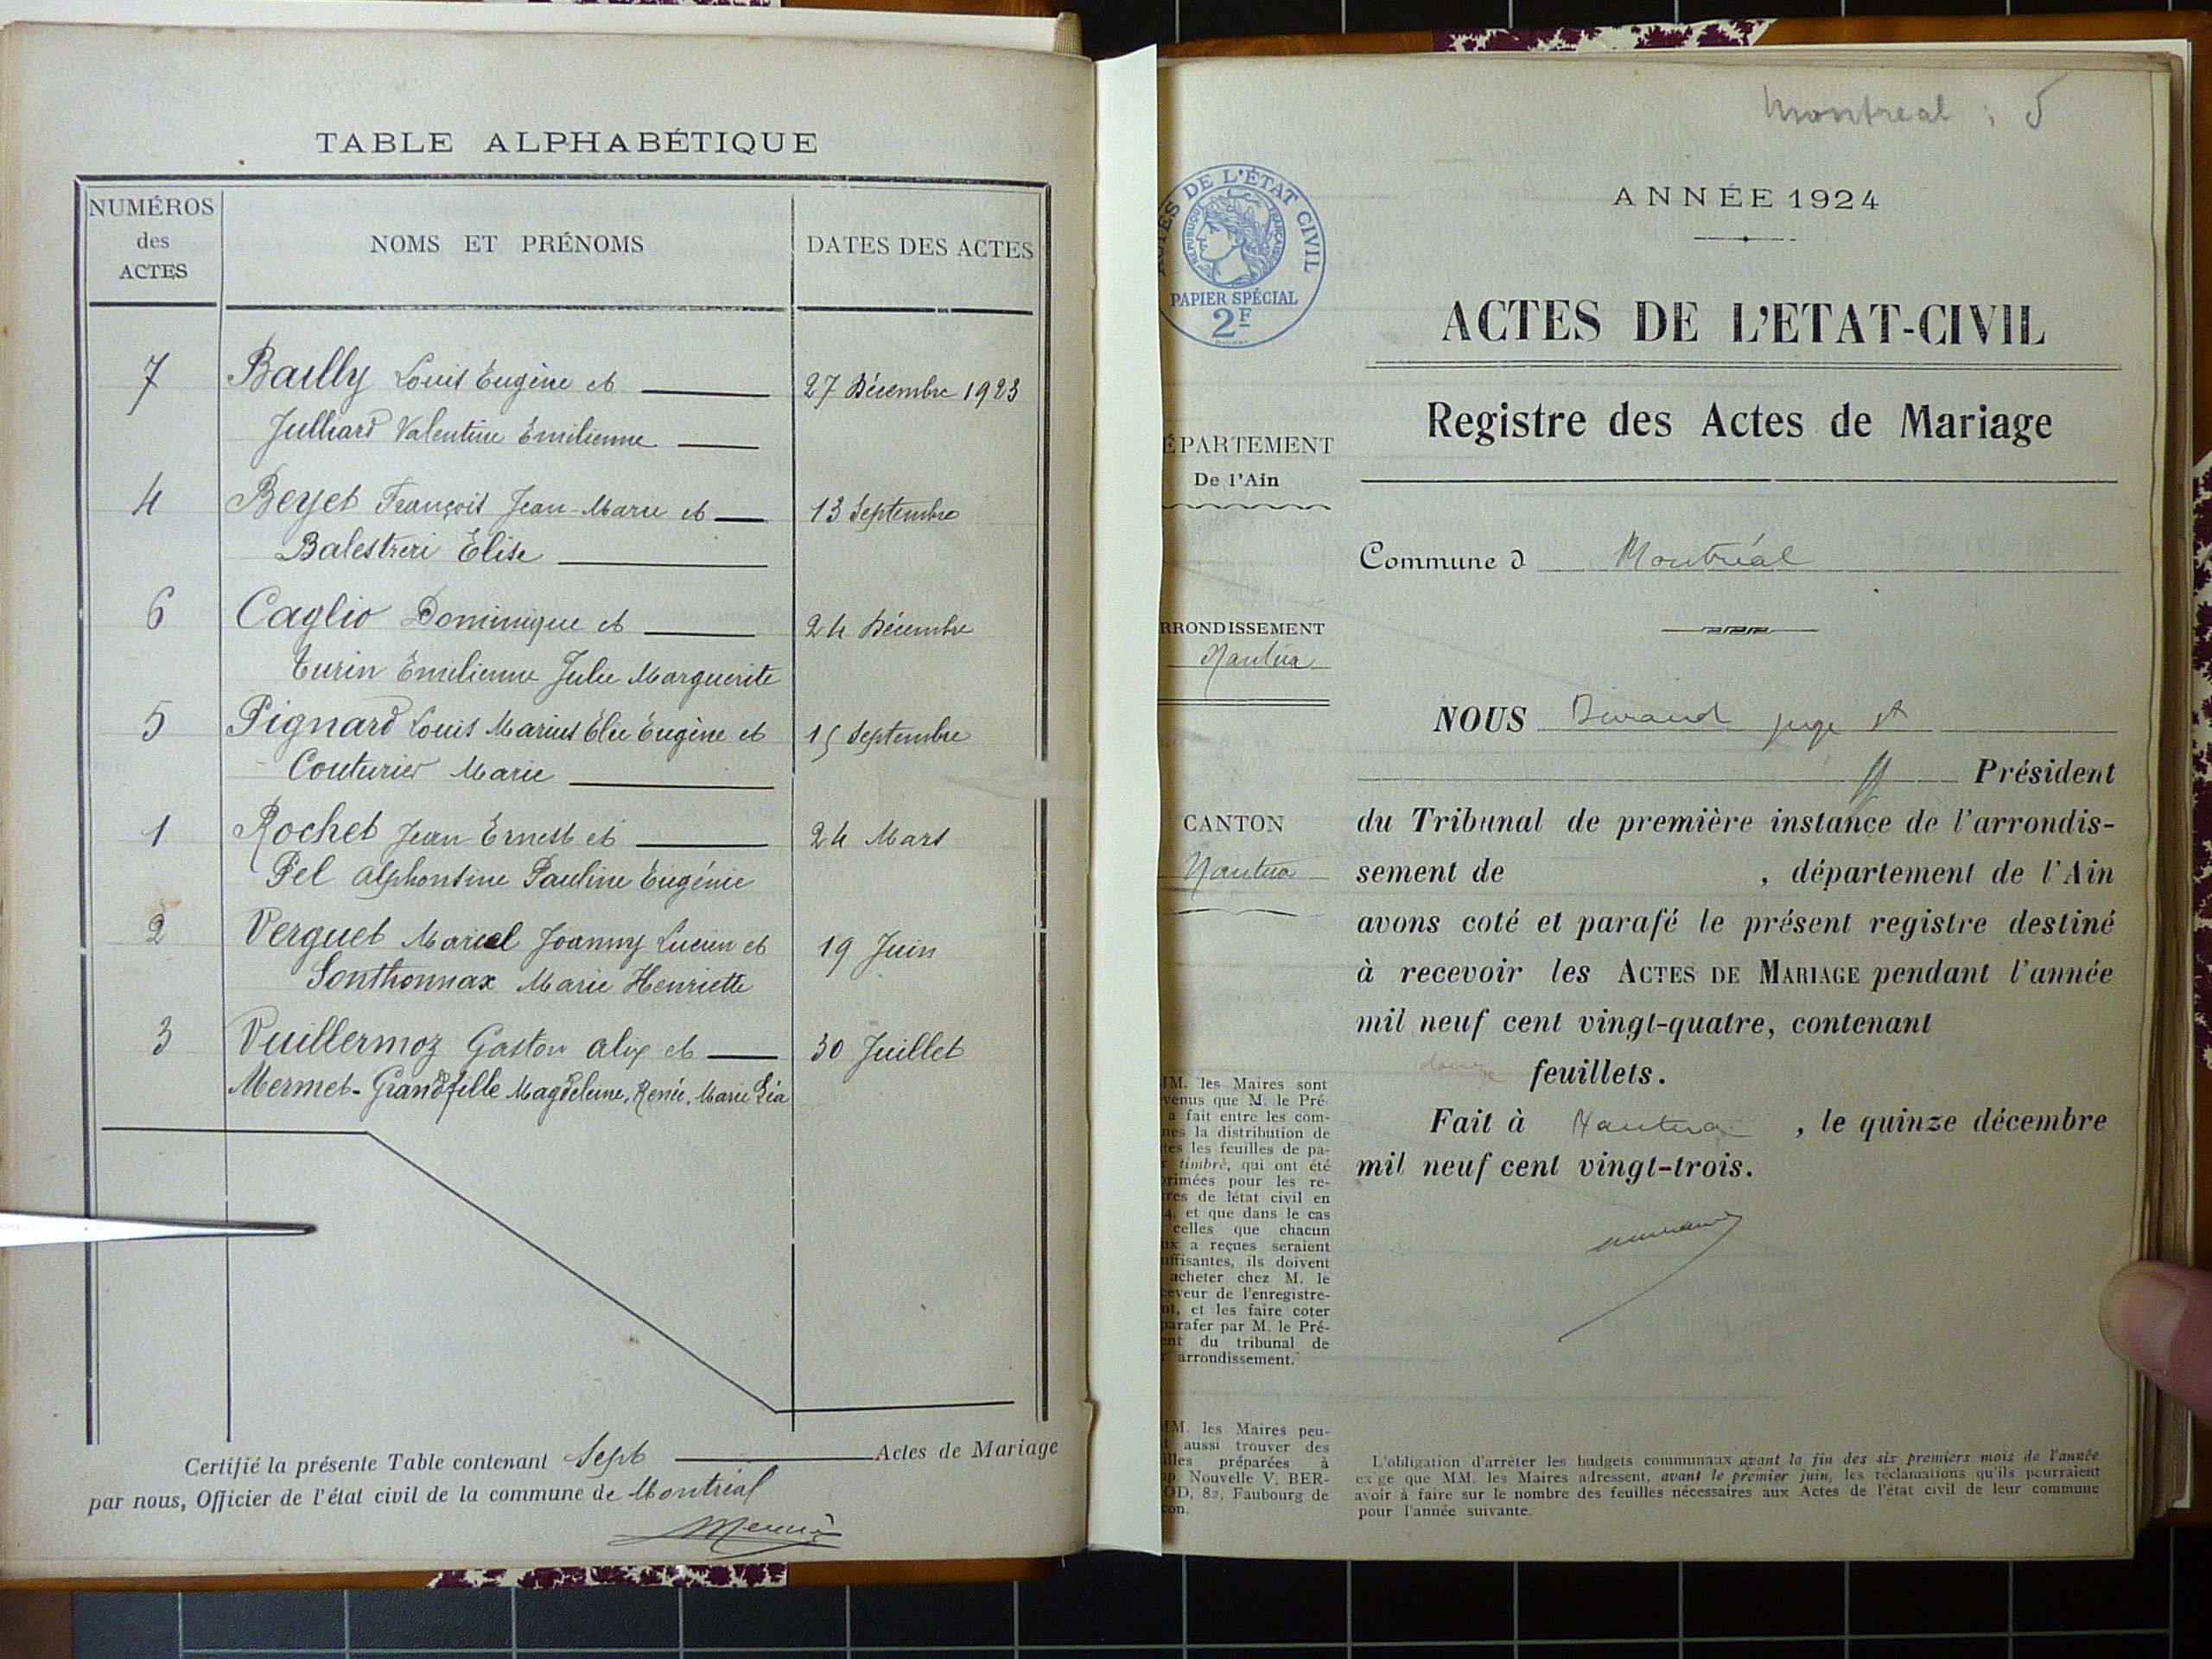 TABLE ALPHABÉTIQUE
NUMÉROS des ACTES
NOMS ET PRÉNOMS
DATES DES ACTES
7 Bailly Louis Eugène et 27 Décembre 1923
Julliard Valentine Emilienne
4 Beyet François Jean-Marie et 13 Septembre
Balestreri Elise
6 Caglio Dominique et 24 Décembre
Turin Emilienne Julie Marguerite
5 Pignard Louis Marius Élie Eugène et 15 Septembre
Couturier Marie
1 Rochet Jean Ernest et 24 Mars
Pel Alphonsine Pauline Eugénie
2 Verguet Marcel Joanny Lucien et 19 Juin
Sonthonnax Marie Henriette
3 Vuillermoz Gaston Alix et 30 Juillet
Mermet-Grandfille Magdeleine, Renée, Marie Léa
Certifié la présente Table contenant Sept Actes de Mariage
par nous, Officier de l'état civil de la commune de Montréal
Montreal : 5
ACTES DE L'ÉTAT CIVIL
RÉPUBLIQUE FRANÇAISE
PAPIER SPÉCIAL
2F
ANNÉE 1924
ACTES DE L'ETAT-CIVIL
Registre des Actes de Mariage
ÉPARTEMENT
De l'Ain
Commune d Montréal
RRONDISSEMENT
Nantua
CANTON
Nantua
NOUS Durand juge st
Président
du Tribunal de première instance de l'arrondis-
sement de , département de l'Ain
avons coté et parafé le présent registre destiné
à recevoir les ACTES DE MARIAGE pendant l'année
mil neuf cent vingt-quatre, contenant
douze feuillets.
Fait à Nantua , le quinze décembre
mil neuf cent vingt-trois.
MM. les Maires sont
venus que M. le Pré-
a fait entre les com-
nes la distribution de
tes les feuilles de pa-
r timbré, qui ont été
rimées pour les re-
tres de létat civil en
4, et que dans le cas
celles que chacun
ux a reçues seraient
uffisantes, ils doivent
acheter chez M. le
ceveur de l'enregistre-
nt, et les faire coter
parafer par M. le Pré-
ent du tribunal de
r arrondissement.
MM. les Maires peu-
t aussi trouver des
illes préparées à
np. Nouvelle V. BER-
OD, 82, Faubourg de
con.
L'obligation d'arrêter les budgets communaux avant la fin des six premiers mois de l'année
exige que MM. les Maires adressent, avant le premier juin, les réclamations qu'ils pourraient
avoir à faire sur le nombre des feuilles nécessaires aux Actes de l'état civil de leur commune
pour l'année suivante.